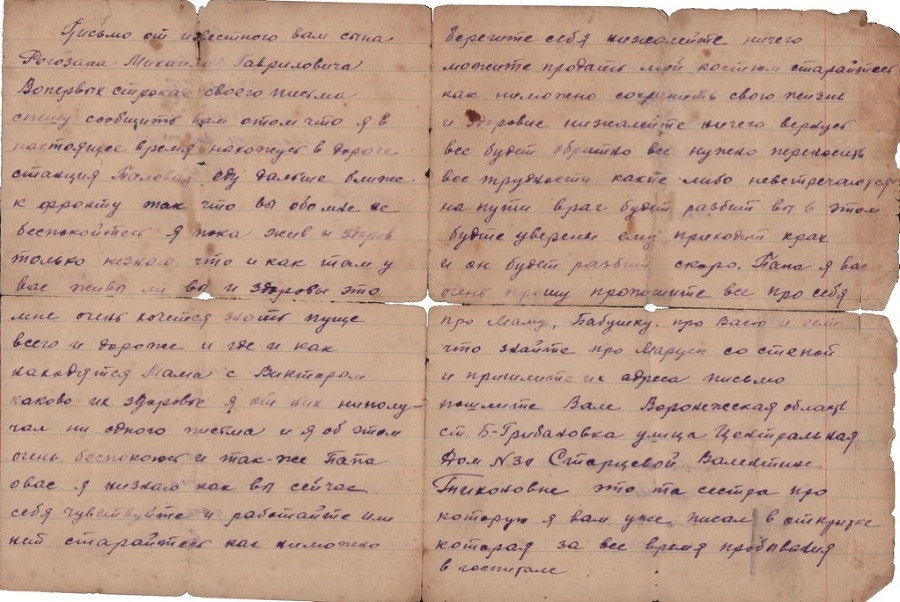 Письмо от известного вам сына
Рогозина Михаила Гавриловича
Вопервых строках своего письма
спешу сообщить вам отом что я в
настоящее время нахожусь в дороге
станция Таловая еду дальше ближе
к фронту так что вы обомне не
беспокойтесь я пока жив и здоров
только незнаю что и как там у
вас живы ли вы и здоровы это
мне очень хочется знать пуще
всего и дороже и где и как
находятся Мама с Виктором
каково их здоровье я от них неполу-
чал ни одного письма и я об этом
очень беспокоюсь и так-же Папа
овас я незнаю как вы сейчас
себя чувствуйте и работайте или
нет старайтесь как неможно
берегите себя нижалейте ничего
можите продать мой костюм старайтесь
как неможно сохранить свою жизнь
и здоровие нижалейте ничего вернусь
все будет обратно все нужно переносить
все трудности какие либо невстречаются
на пути враг будет разбит вы в этом
будте уверены ему приходит крах
и он будет разбит скоро. Папа я вас
очень прошу пропишите все про себя
про Маму, Бабушку, про Васю и если
что знайте про Марусю со степой
и пришлите их адреса письмо
пошлите Вале Воронежская область
ст. Б-Грибановка улица Центральная
Дом N30 Старцевой Валентине
Тихоновне это та сестра про
которую я вам уже писал в открытке
которая за все время пробывания
в госпитале